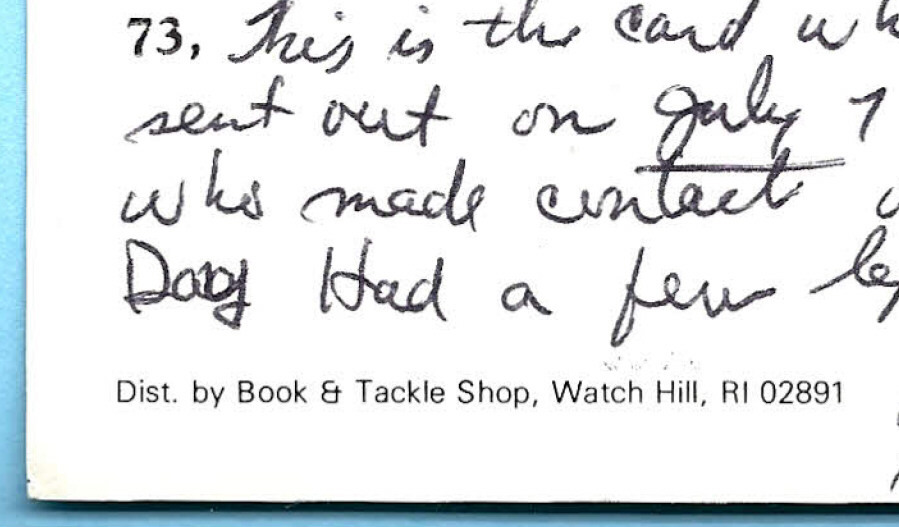 73, This is the card
sent out on July
who made contact
Day Had a few
Dist. by Book & Tackle Shop, Watch Hill, RI 02891